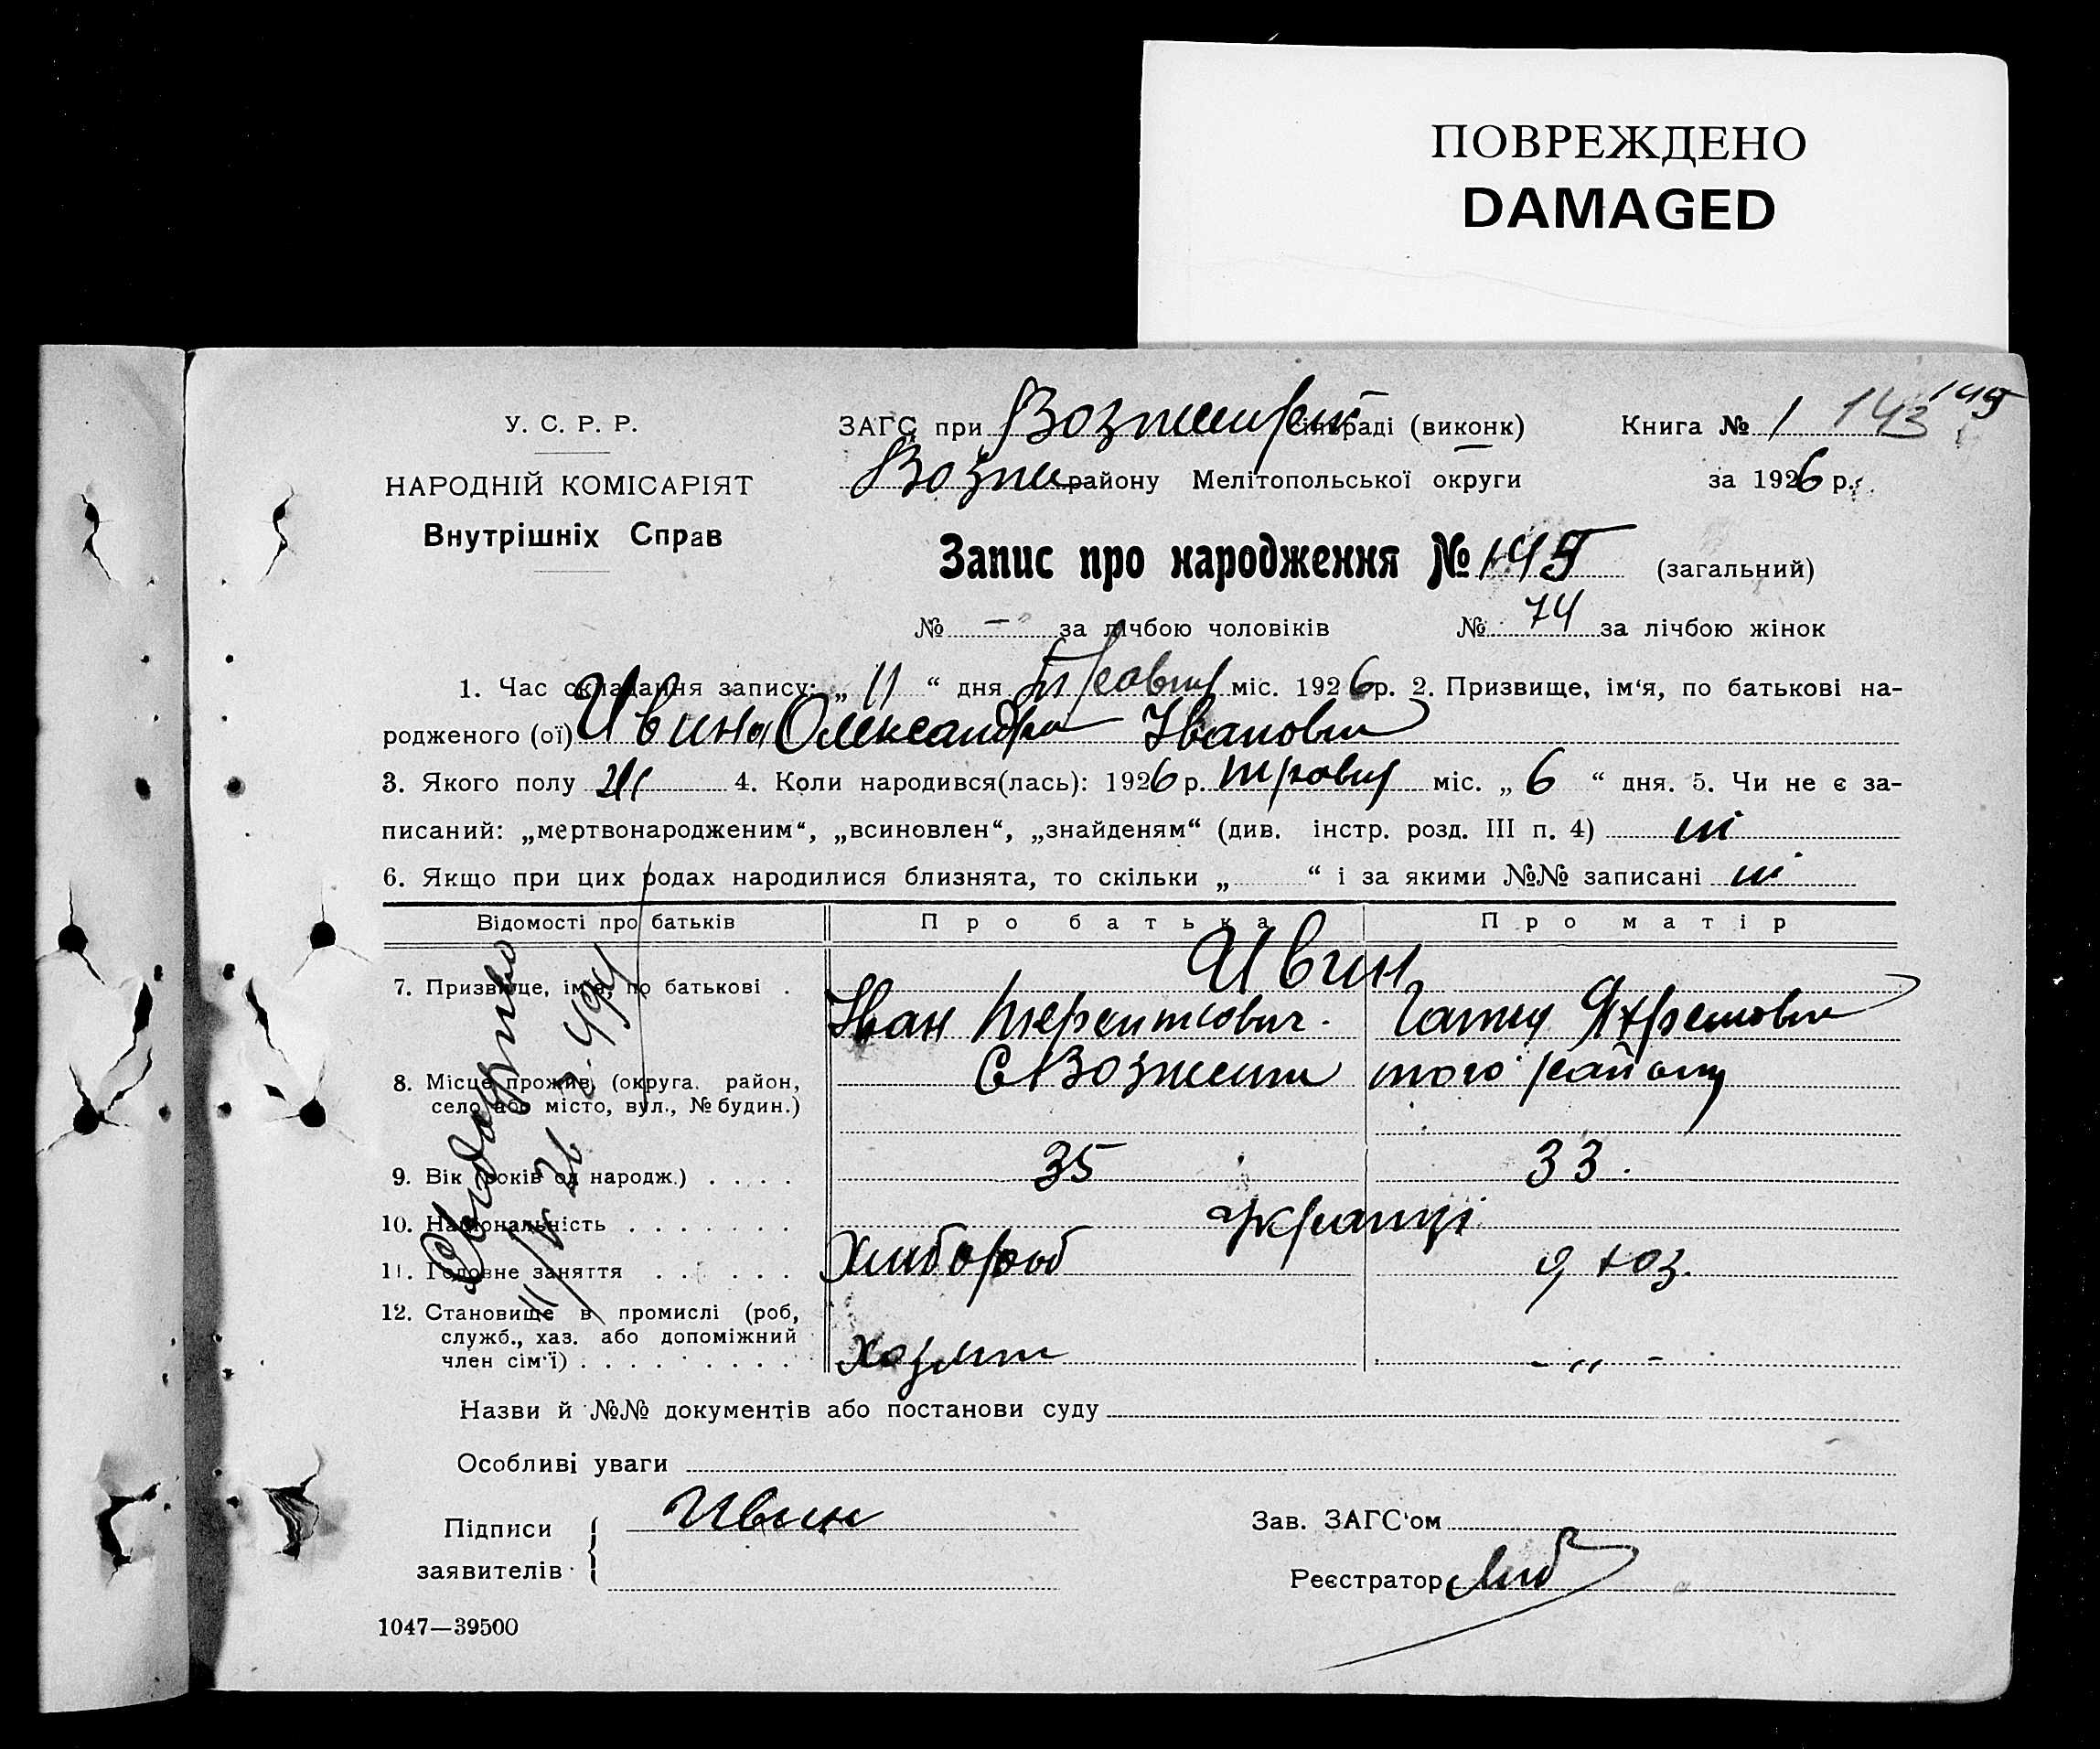 ПОВРЕЖДЕНО
DAMAGED
У. С. Р. Р.
НАРОДНІЙ КОМІСАРІЯТ
Внутрішніх Справ
ЗАГС при сільраді (виконк)
району Мелітопольської округи
Книга № 1 143 145
за 1926 р.
Запис про народження № 145 (загальний)
№ — за лічбою чоловіків № 74 за лічбою жінок
1. Час складання запису: „ 11 “ дня травня міс. 1926 р. 2. Призвище, ім‘я, по батькові на-
родженого (ої) Ивина Олександра Івановна
3. Якого полу ж 4. Коли народився(лась): 1926 р. травня міс. „ 6 “ дня. 5. Чи не є за-
писаний: „мертвонародженим“, „всиновлен“, „знайденям“ (див. інстр. розд. III п. 4) ні
6. Якщо при цих родах народилися близнята, то скільки „ “ і за якими №№ записані ні
Відомості про батьків Про батька Про матір
7. Призвище, ім‘я, по батькові . Ивин
Іван Терентиович. Ганна
8. Місце прожив. (округа, район,
село або місто, вул., № будин.)
того району
9. Вік (років од народж.) . . . . 35 33.
10. Національність . . . . . . . українці
11. Головне заняття . . . . . . хлібороб д хоз.
12. Становище в промислі (роб,
служб., хаз. або допоміжний
член сім‘ї) . . . . . . . . . хозяин - „ -
Назви й №№ документів або постанови суду
Особливі уваги
Підписи
заявителів
Ивин
Зав. ЗАГС‘ом
Реєстратор
1047—39500